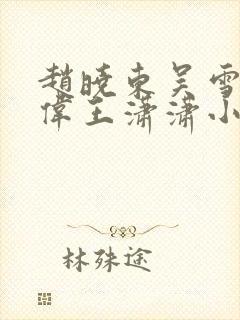 趙曉東吴雪
偉王潇潇小
林殊途